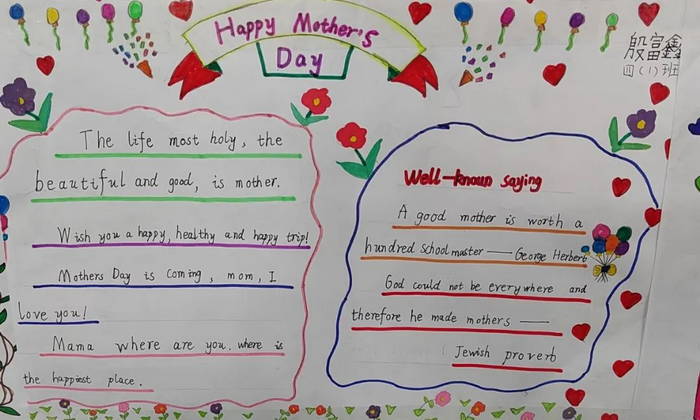 Happy Mother's
Day
殷富鑫
四(1)班
The life most holy, the
beautiful and good, is mother.
Wish you a happy, healthy and happy trip!
Mothers Day is coming, mom, I
love you!
Mama where are you. where is
the happiest place.
Well-known saying
A good mother is worth a
hundred schoolmaster — George Herbert
God could not be everywhere and
therefore he made mothers —
Jewish proverb